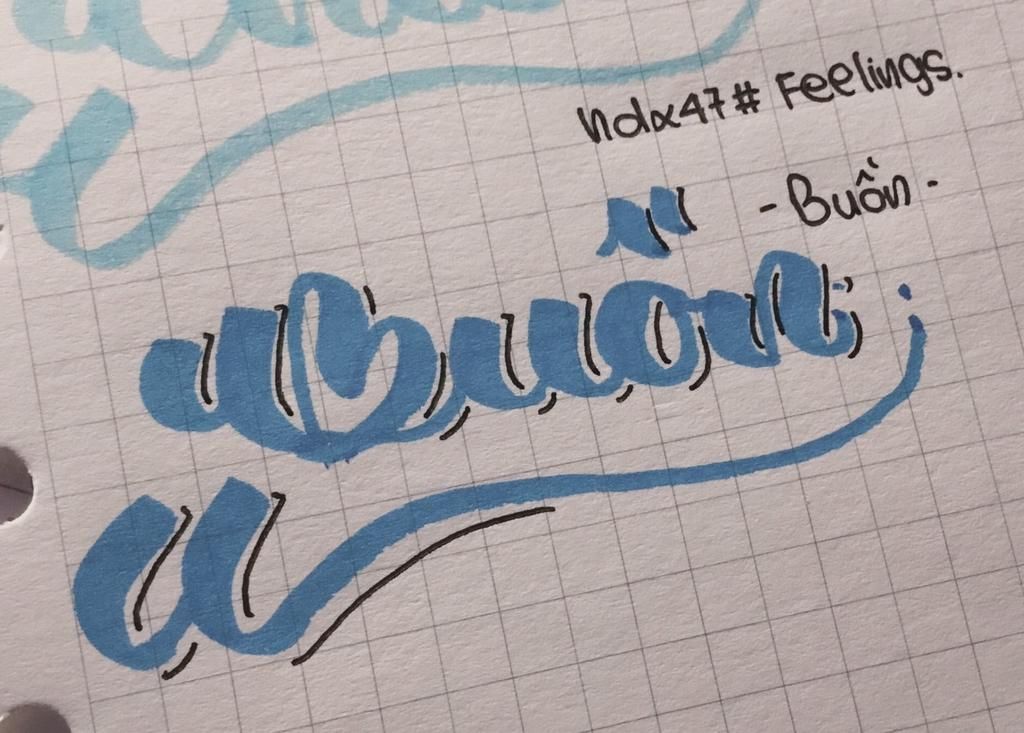 ndx47# Feelings.
- Buồn -
Buồn